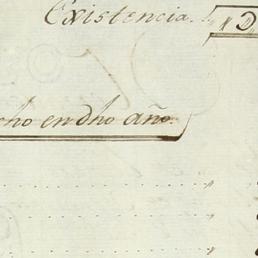 Existencia.
cho en dho año.